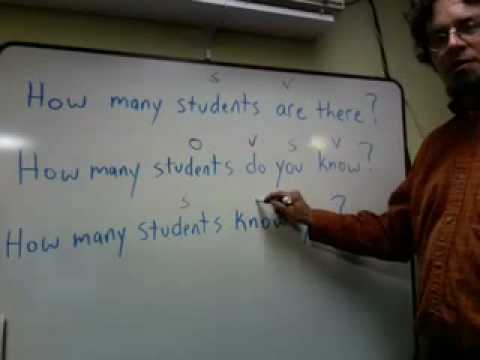 S V
How many students are there?
O V S V
How many students do you know?
S
How many students know ?